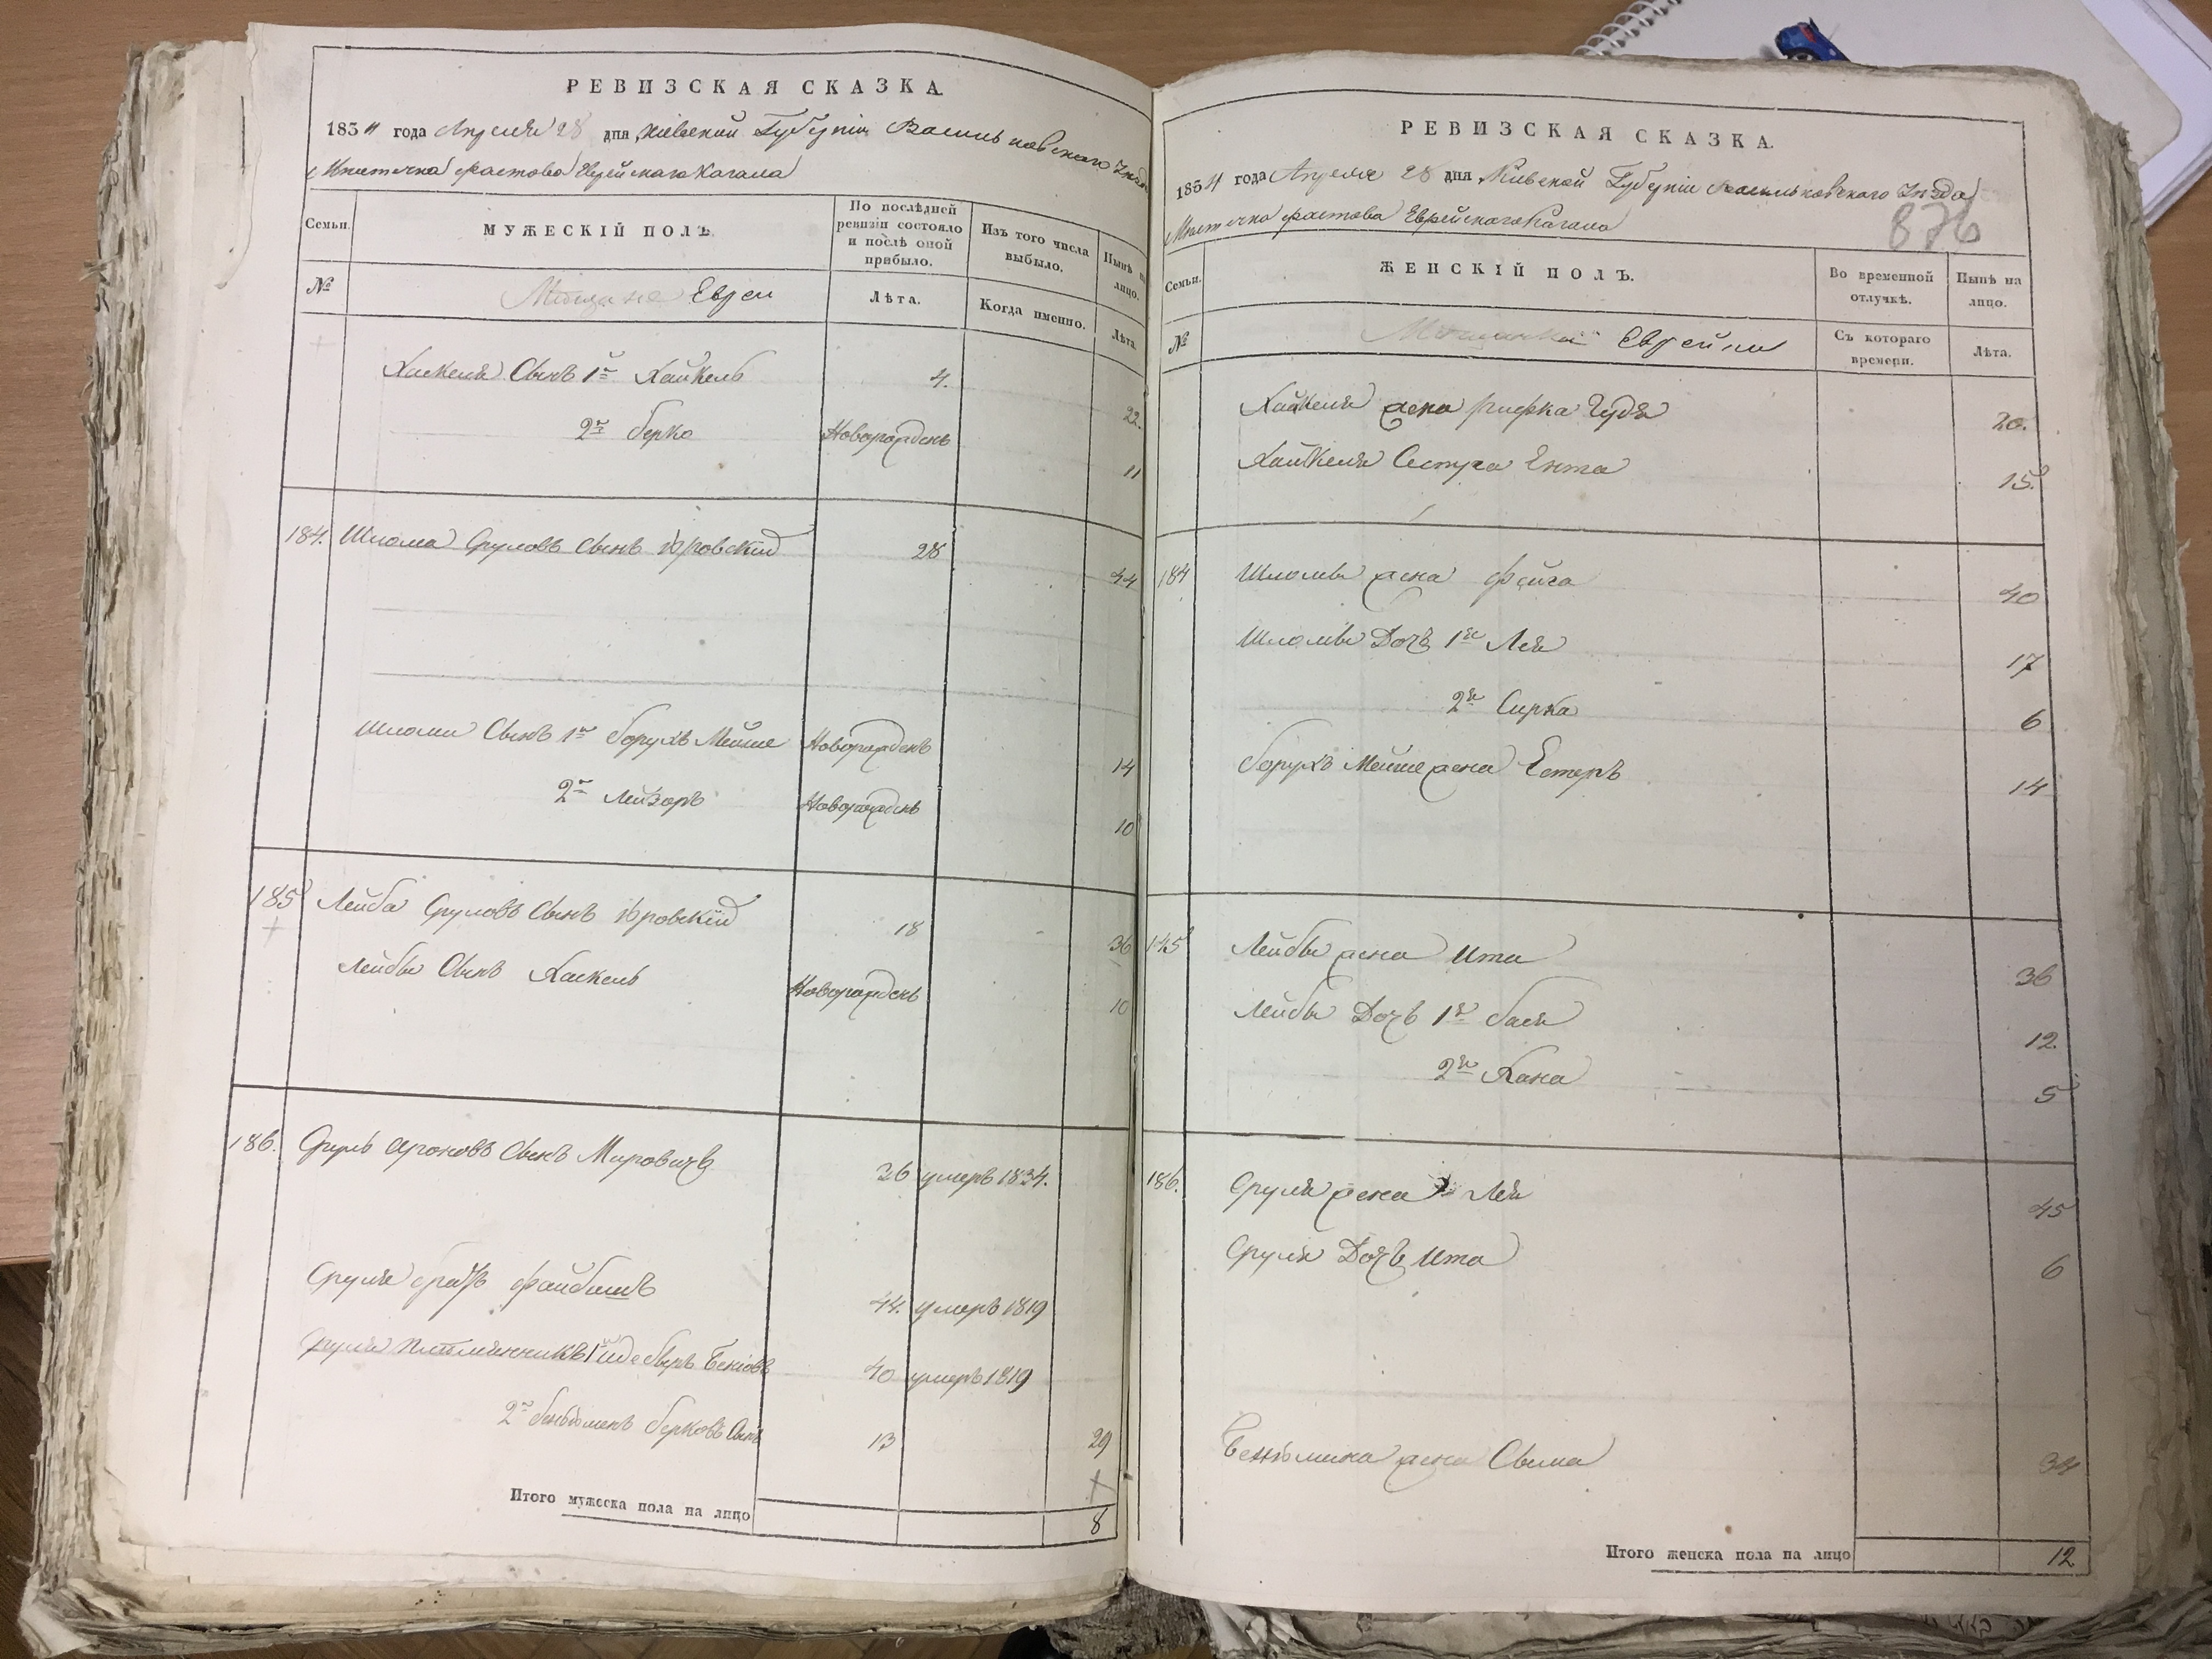 РЕВИЗСКАЯ СКАЗКА.
1834 года Апреля 28 дня, Кіевской Губерніи Васильковского Уезда
Местечка Фастова Еврейского Кагала
Семьи.
МУЖЕСКІЙ ПОЛЪ.
По послѣдней ревизіи состояло и послѣ оной прибыло.
Изъ того числа выбыло.
Нынѣ на лицо.
№
Мещане Евреи
Лѣта.
Когда именно.
Лѣта.
Хаскеля Сынъ 1й Хайкель 4. 22.
2й Берко Новорожденъ 11
184. Шлома Сруловъ Сынъ 28 44
Шломы Сынъ 1й Борухъ Мейше Новорожденъ 14
2й Лейзоръ Новорожденъ 10
185 Лейба Сруловъ Сынъ 18 36
Лейбы Сынъ Хаскель Новорожденъ 10
186. Сруль Ароновъ Сынъ Мировичъ 36 умеръ 1834.
Сруля братъ Файбишъ 44. умеръ 1819
Сруля племянникъ 1й 40 умеръ 1819
2й Беньоменъ Берковъ Сынъ 13 29
Итого мужеска пола на лицо 8
РЕВИЗСКАЯ СКАЗКА.
1834 года Апреля 28 дня, Кіевской Губерніи Васильковского Уезда
Местечка Фастова Еврейского Кагала
876
Семьи.
ЖЕНСКІЙ ПОЛЪ.
Во временной отлучкѣ.
Нынѣ на лицо.
№
Мещанки Еврейки
Съ котораго времени.
Лѣта.
Хайкеля жена Рифка Гудя 20.
Хайкеля Сестра Ента 15.
184 Шломы жена Фейга 40
Шломы Дочь 1я Лея 17
2я Сирка 6
Борухъ Мейше жена Естеръ 14
185 Лейбы жена Ита 36
Лейбы Дочь 1я Бася 12.
2я Хана 5
186. Сруля жена Лея 45
Сруля Дочь Ита 6
Беньомина жена Сыма 34
Итого женска пола на лицо 12